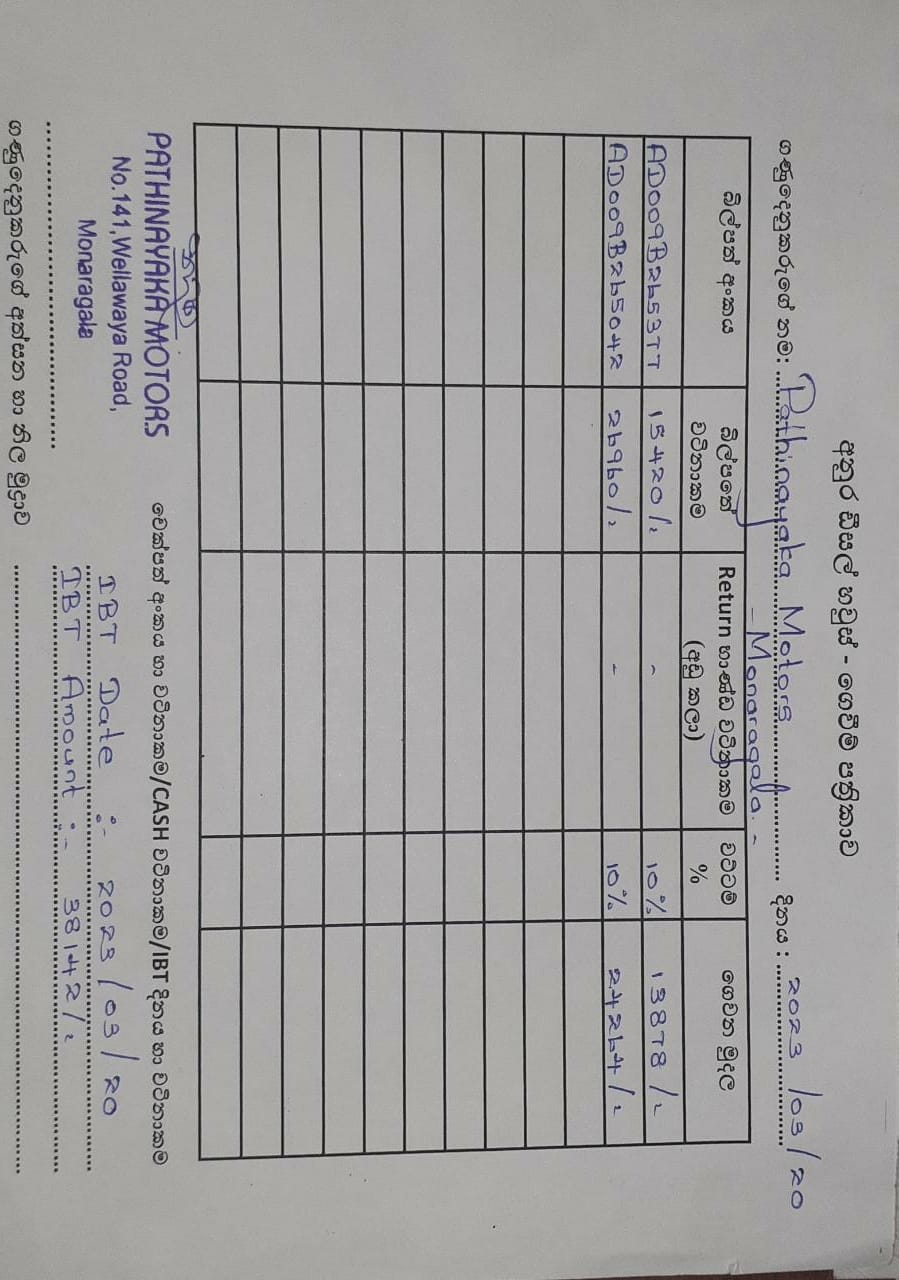 අනුර ඩීසල් හවුස් - ගෙවීම් පත්‍රිකාව
ගණුදෙනුකරුගේ නම: Pathinayaka Motors දිනය : 2023/03/20
- Monaragala. -
බිල්පත් අංකය බිල්පතේ වටිනාකම Return භාණ්ඩ වටිනාකම (අඩු කලා) වට්ටම් % ගෙවන මුදල
AD009B265377 15420/= - 10% 13878/=
AD009B265042 26960/= - 10% 24264/=
චෙක්පත් අංකය හා වටිනාකම/CASH වටිනාකම/IBT දිනය හා වටිනාකම
PATHINAYAKA MOTORS
No.141,Wellawaya Road,
Monaragala
IBT Date :- 2023/03/20
IBT Amount :- 38142/=
ගණුදෙනුකරුගේ අත්සන හා නිල මුද්‍රාව